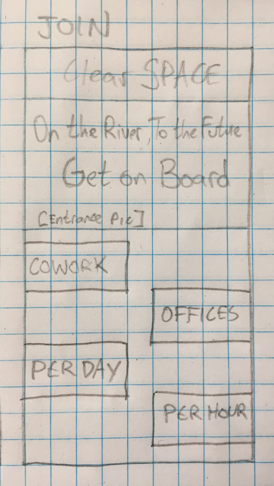 JOIN
Clear SPACE
On the River, To the Future
Get on Board
[Entrance Pic]
COWORK
OFFICES
PER DAY
PER HOUR